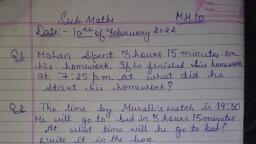 Sub. Maths M.M.10
Date:- 10th of February 2022
Q.1 Mohan spent 3 hours 15 minutes on
his homework. If he finished his homework
at 7:25 p.m. at what did he
start his homework?
Q.2 The time by Murali's watch is 19:30
He will go to bed in 3 hours 15 minutes
At what time will he go to bed?
Write it in the hour.